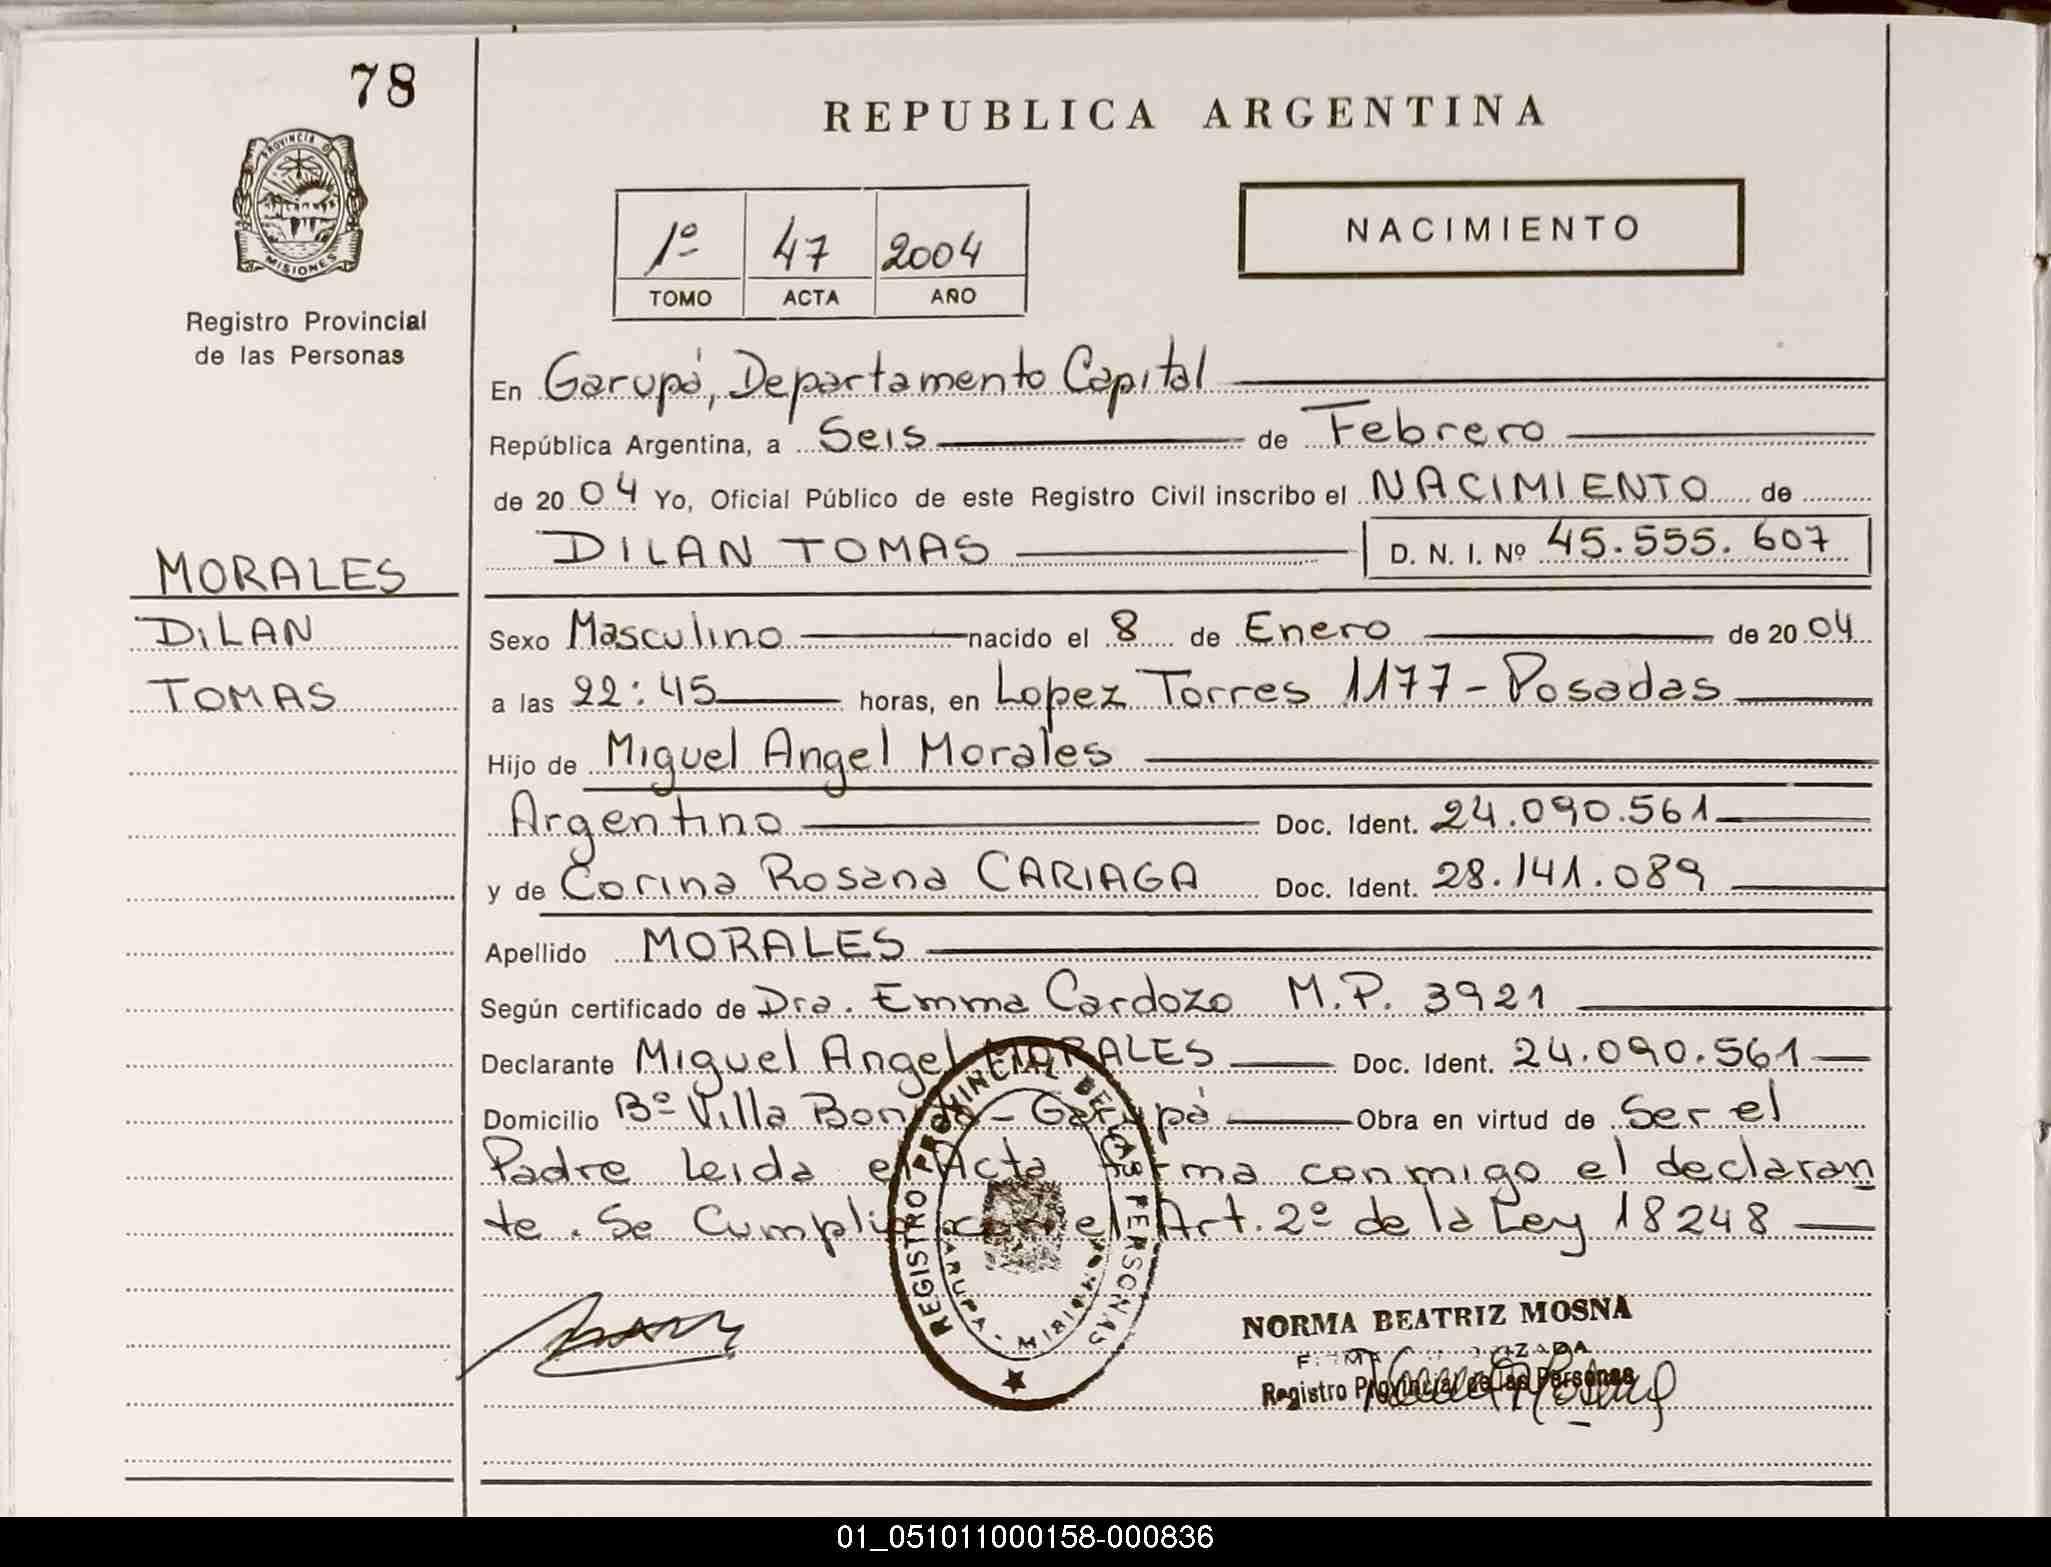 78
PROVINCIA DE
MISIONES
Registro Provincial
de las Personas
MORALES
DILAN
TOMAS
REPUBLICA ARGENTINA
1º 47 2004
TOMO ACTA AÑO
NACIMIENTO
En Garupá, Departamento Capital
República Argentina, a Seis de Febrero
de 2004 Yo, Oficial Público de este Registro Civil inscribo el NACIMIENTO de
DILAN TOMAS D. N. I. Nº 45.555.607
Sexo Masculino nacido el 8 de Enero de 2004
a las 22:45 horas, en Lopez Torres 1177 - Posadas
Hijo de Miguel Angel Morales
Argentino Doc. Ident. 24.090.561
y de Corina Rosana CARIAGA Doc. Ident. 28.141.089
Apellido MORALES
Según certificado de Dra. Emma Cardozo M.P. 3921
Declarante Miguel Angel MORALES Doc. Ident. 24.090.561
Domicilio Bº Villa - Garupá Obra en virtud de Ser el
Padre Leida el Acta firma conmigo el declaran
te. Se Cumplio con el Art. 2º de la Ley 18248
REGISTRO PROVINCIAL DE LAS PERSONAS
GARUPA - MISIONES
NORMA BEATRIZ MOSNA
Registro Provincial de las Personas
01_051011000158-000836